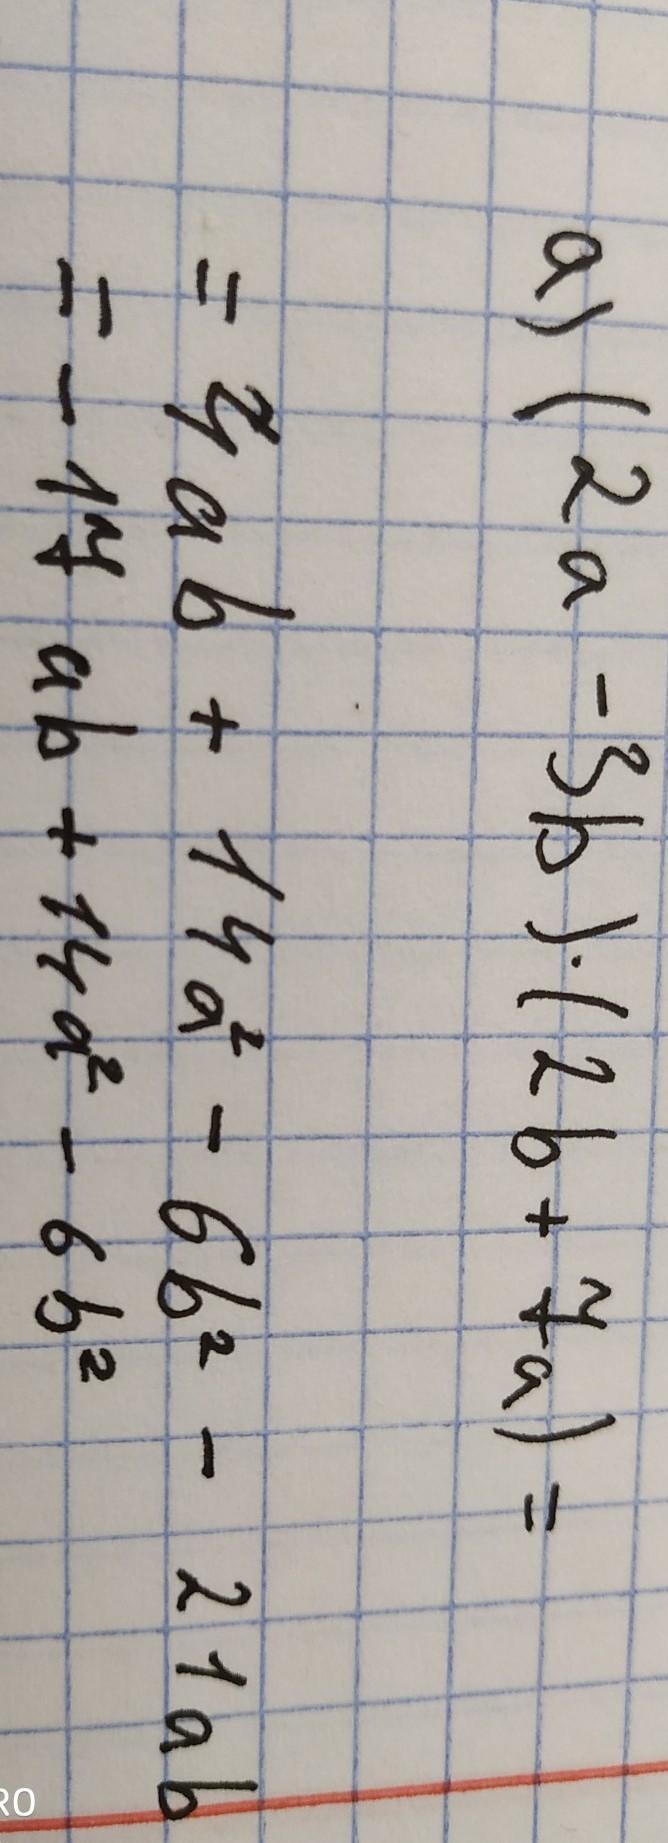 a) (2a - 3b) · (2b + 7a) =
= 4ab + 14a² - 6b² - 21ab
= - 17ab + 14a² - 6b²
RO